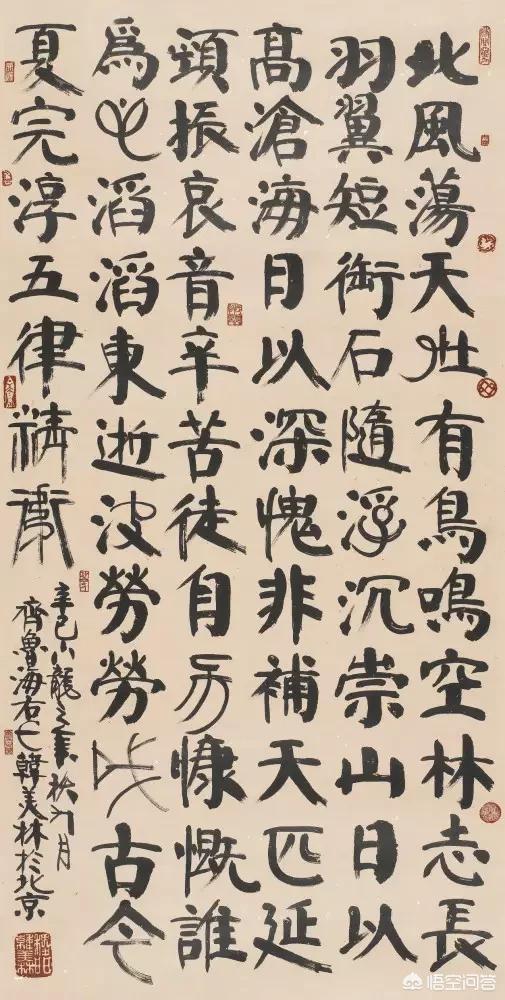 北風蕩天地有鳥鳴空林志長
羽翼短銜石隨浮沉崇山日以
高滄海日以深愧非補天匹延
頸振哀音辛苦徒自力慷慨誰
爲心滔滔東逝波勞勞成古今
夏完淳五律精衛
辛巳小龍之年秋九月
齊魯海右韓美林於北京
悟空问答